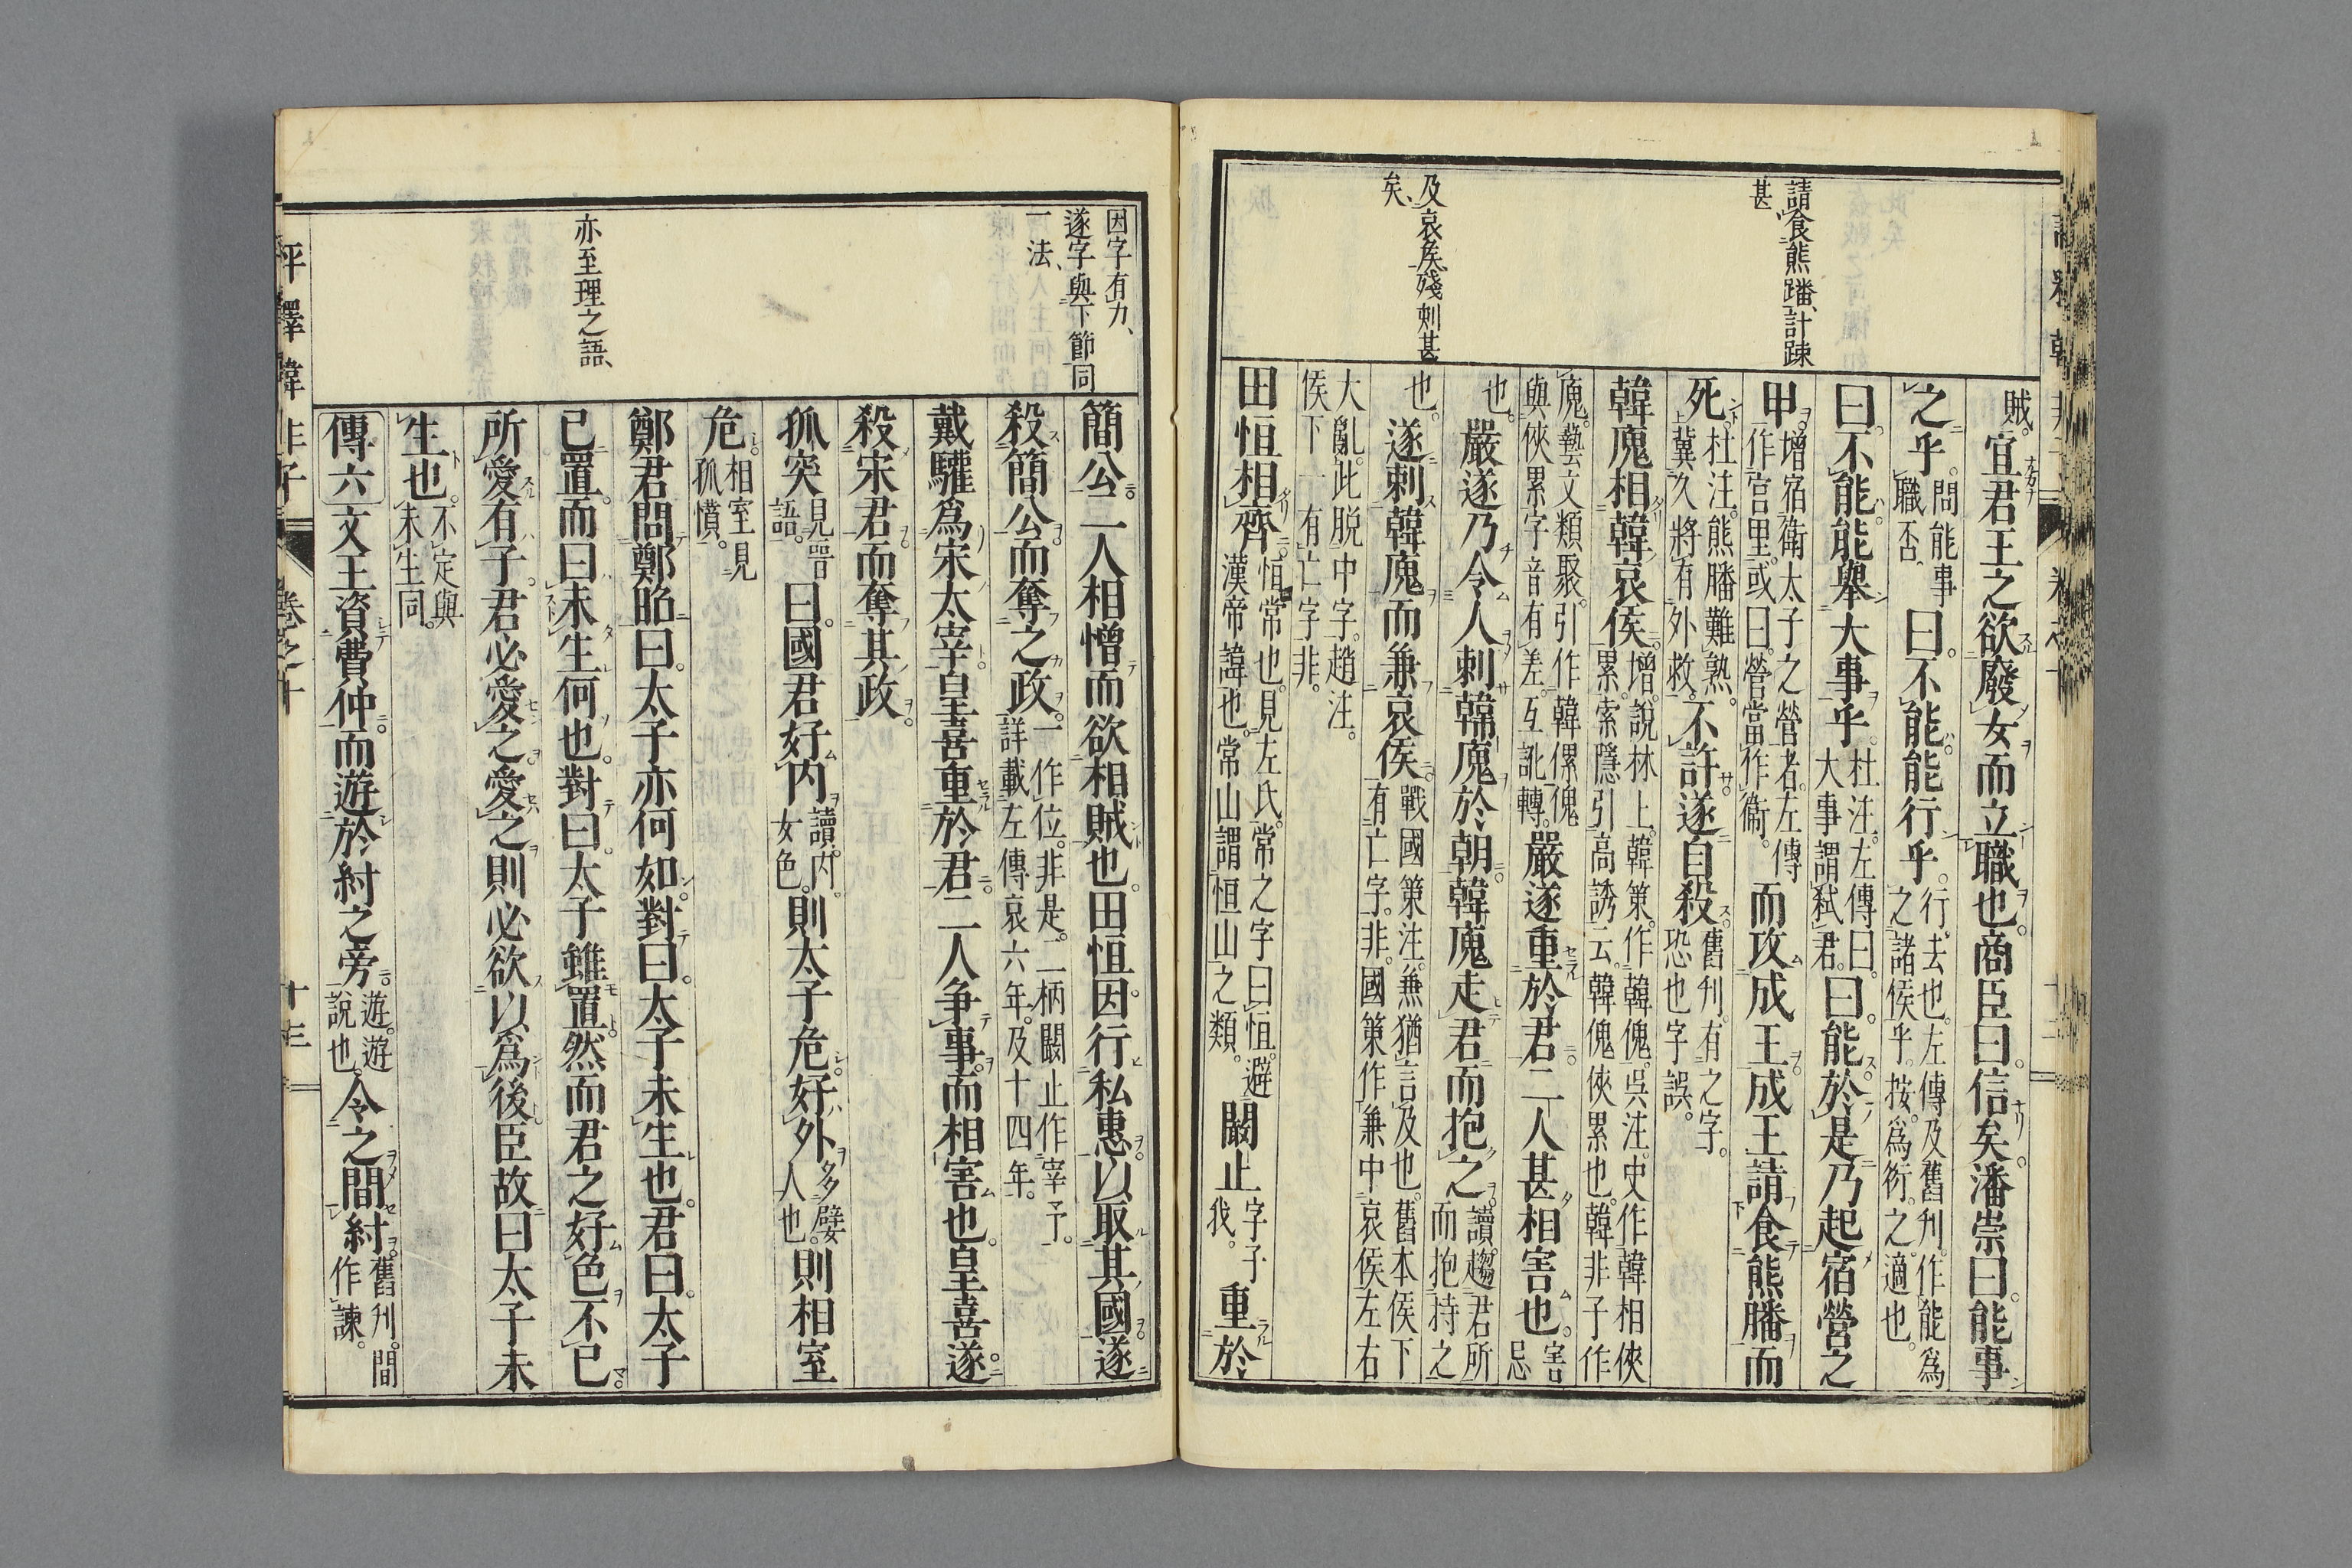 請食熊蹯、計疎
甚、
及哀侯、殘刺甚
矣、
賊。宜君王之欲廢女而立職也。商臣曰。信矣。潘崇曰。能事
之乎。問能事職否。曰。不能。能行乎。行、去也。左傳及舊刋。作能爲之諸侯乎。按。爲衍。之適也。
曰。不能。能舉大事乎。杜注。左傳曰。大事謂弑君。曰。能。於是乃起宿營之
甲。增宿衛太子之營者。左傳作宮里。或曰。營當作衞。而攻成王。成王請食熊膰而
死。杜注。熊膰難熟。冀久將有外救。不許。遂自殺。舊刋。有之字。恐也字誤。
韓廆相韓哀侯。增。說林上。韓策。作韓傀。吳注。史作韓相俠累。索隱引高誘云。韓傀俠累也。韓非子作
廆。藝文類聚。引作韓傫傀與俠累字音有差。互訛轉。嚴遂重於君。二人甚相害也。害忌
也。嚴遂乃令人刺韓廆於朝。韓廆走君而抱之。讀。趨君所而抱持之
也。遂刺韓廆而兼哀侯。戰國策注。兼猶言及也。舊本侯下有亡字。非。國策作兼中哀侯左右
大亂。此脱中字。趙注。侯下一有亡字非。
田恒相齊。恒常也。見左氏。常之字曰恒。避漢帝諱也。常山謂恒山之類。闞止字子我。重於
因字有力、
遂字與下節同
一法、
亦至理之語、
簡公。二人相憎而欲相賊也。田恒因行私惠以取其國。遂
殺簡公而奪之政。一作位。非是。二柄闞止作宰予。詳載左傳哀六年。及十四年。
戴驩爲宋太宰。皇喜重於君。二人爭事而相害也。皇喜遂
殺宋君而奪其政。
狐突見晉語。曰。國君好內。讀。內。女色。則太子危。好外。多嬖人也。則相室
危。相室見孤憤。
鄭君問鄭昭曰。太子亦何如。對曰。太子未生也。君曰。太子
已置。而曰未生何也。對曰。太子雖置。然而君之好色不已。
所愛有子。君必愛之。愛之則必欲以爲後。臣故曰太子未
生也。不定與未生同。
傳六 文王資費仲。而遊於紂之旁。遊。遊說也。令之間紂。舊刋。間作諫。
評釋韓非子 卷之十 十三